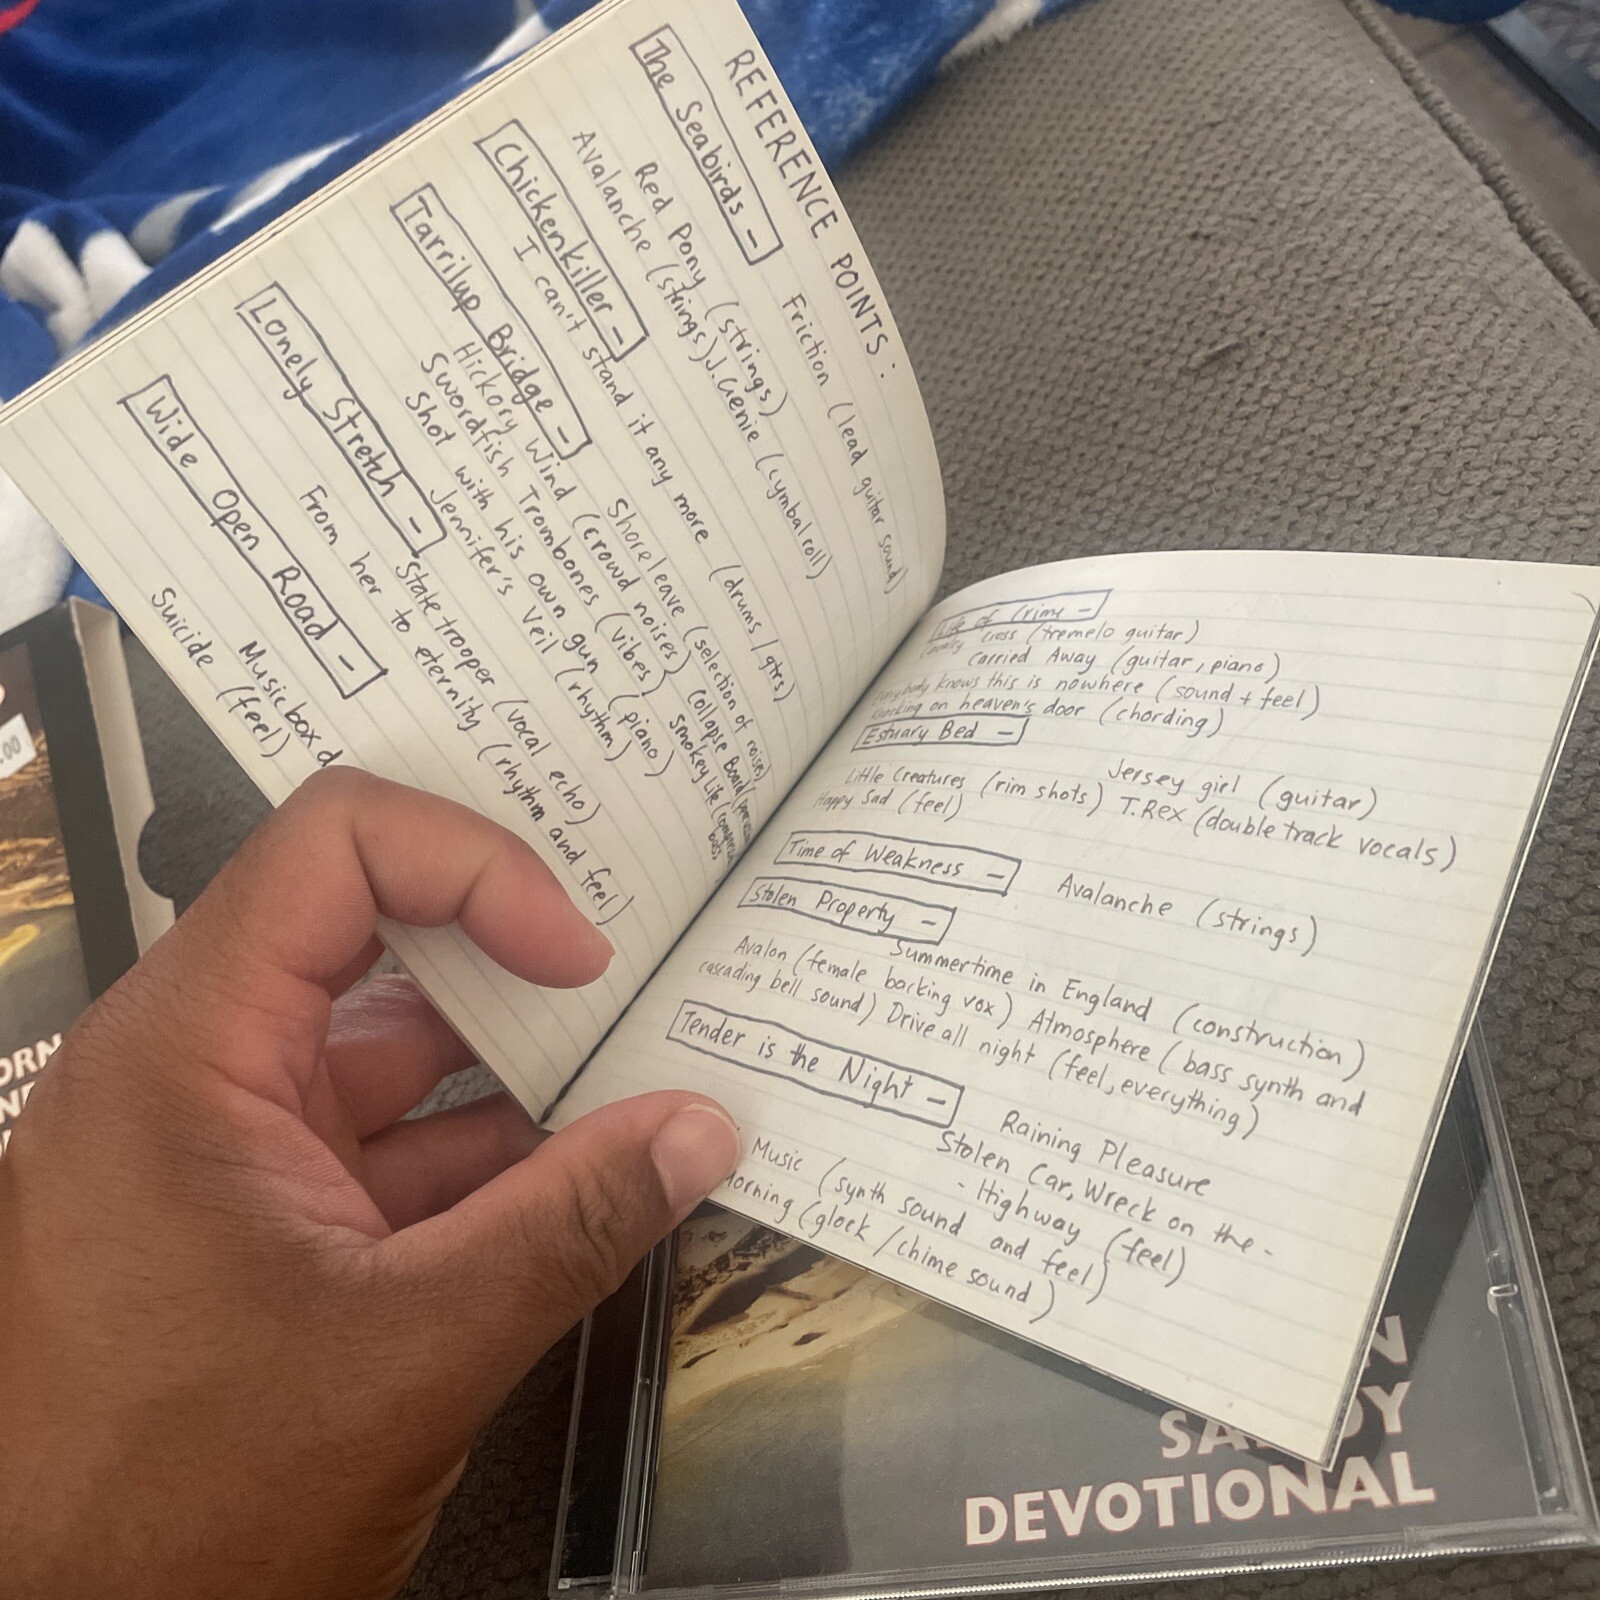 REFERENCE POINTS:
The Seabirds -
Friction (lead guitar sound)
Red Pony (strings)
Avalanche (strings) J. Genie (cymbal roll)
Chickenkiller -
I can't stand it any more (drums / gtrs)
Tarrilup Bridge -
Shore leave (selection of noises)
Hickory Wind (crowd noises) Collapse Board
Swordfish Trombones (vibes) Smokey Life
Shot with his own gun (piano) bass
Jennifer's Veil (rhythm)
Lonely Stretch -
State trooper (vocal echo)
From her to eternity (rhythm and feel)
Wide Open Road -
Music box
Suicide (feel)
Life of Crime -
Cross (tremelo guitar)
Carried Away (guitar, piano)
knows this is nowhere (sound + feel)
on heaven's door (chording)
Estuary Bed -
Jersey girl (guitar)
Little Creatures (rim shots) T.Rex (double track vocals)
Happy Sad (feel)
Time of Weakness -
Avalanche (strings)
Stolen Property -
Summertime in England (construction)
Avalon (female backing vox) Atmosphere (bass synth and
cascading bell sound) Drive all night (feel, everything)
Tender is the Night -
Raining Pleasure
Stolen Car, Wreck on the -
- Highway (feel)
Music (synth sound and feel)
Morning (glock / chime sound)
.00
DEVOTIONAL